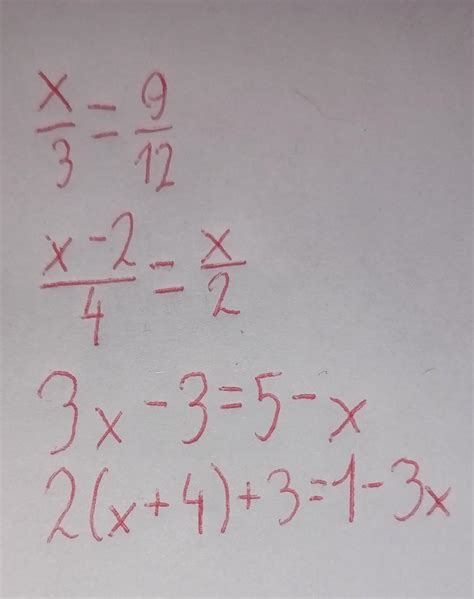 x/3 = 9/12
x-2/4 = x/2
3x-3=5-x
2(x+4)+3=1-3x